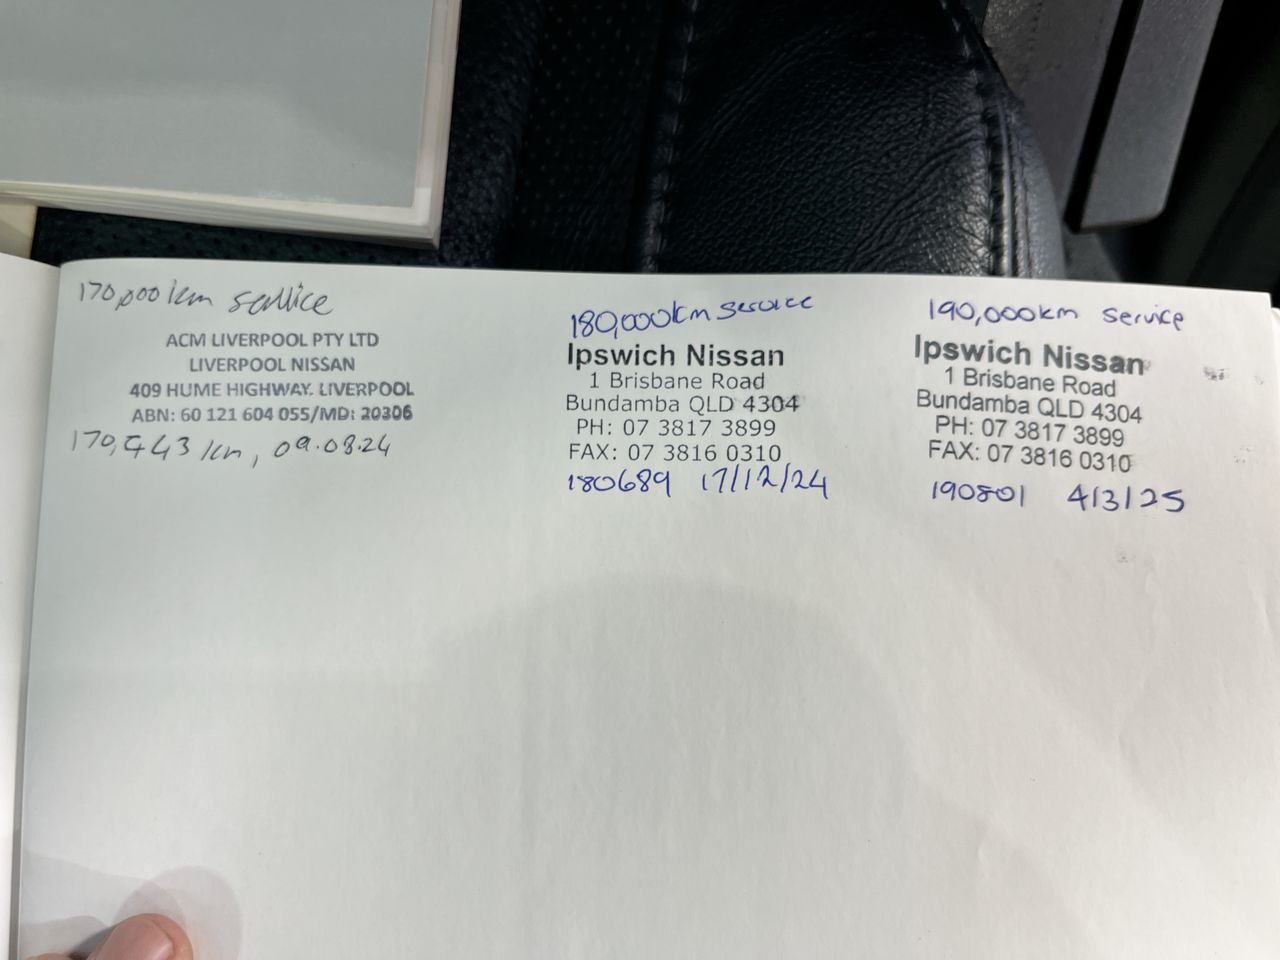 170,000km service
ACM LIVERPOOL PTY LTD
LIVERPOOL NISSAN
409 HUME HIGHWAY. LIVERPOOL
ABN: 60 121 604 055/MD: 20306
170,443 km, 09.08.24
180,000km service
Ipswich Nissan
1 Brisbane Road
Bundamba QLD 4304
PH: 07 3817 3899
FAX: 07 3816 0310
180689 17/12/24
190,000km service
Ipswich Nissan
1 Brisbane Road
Bundamba QLD 4304
PH: 07 3817 3899
FAX: 07 3816 0310
190801 4/3/25